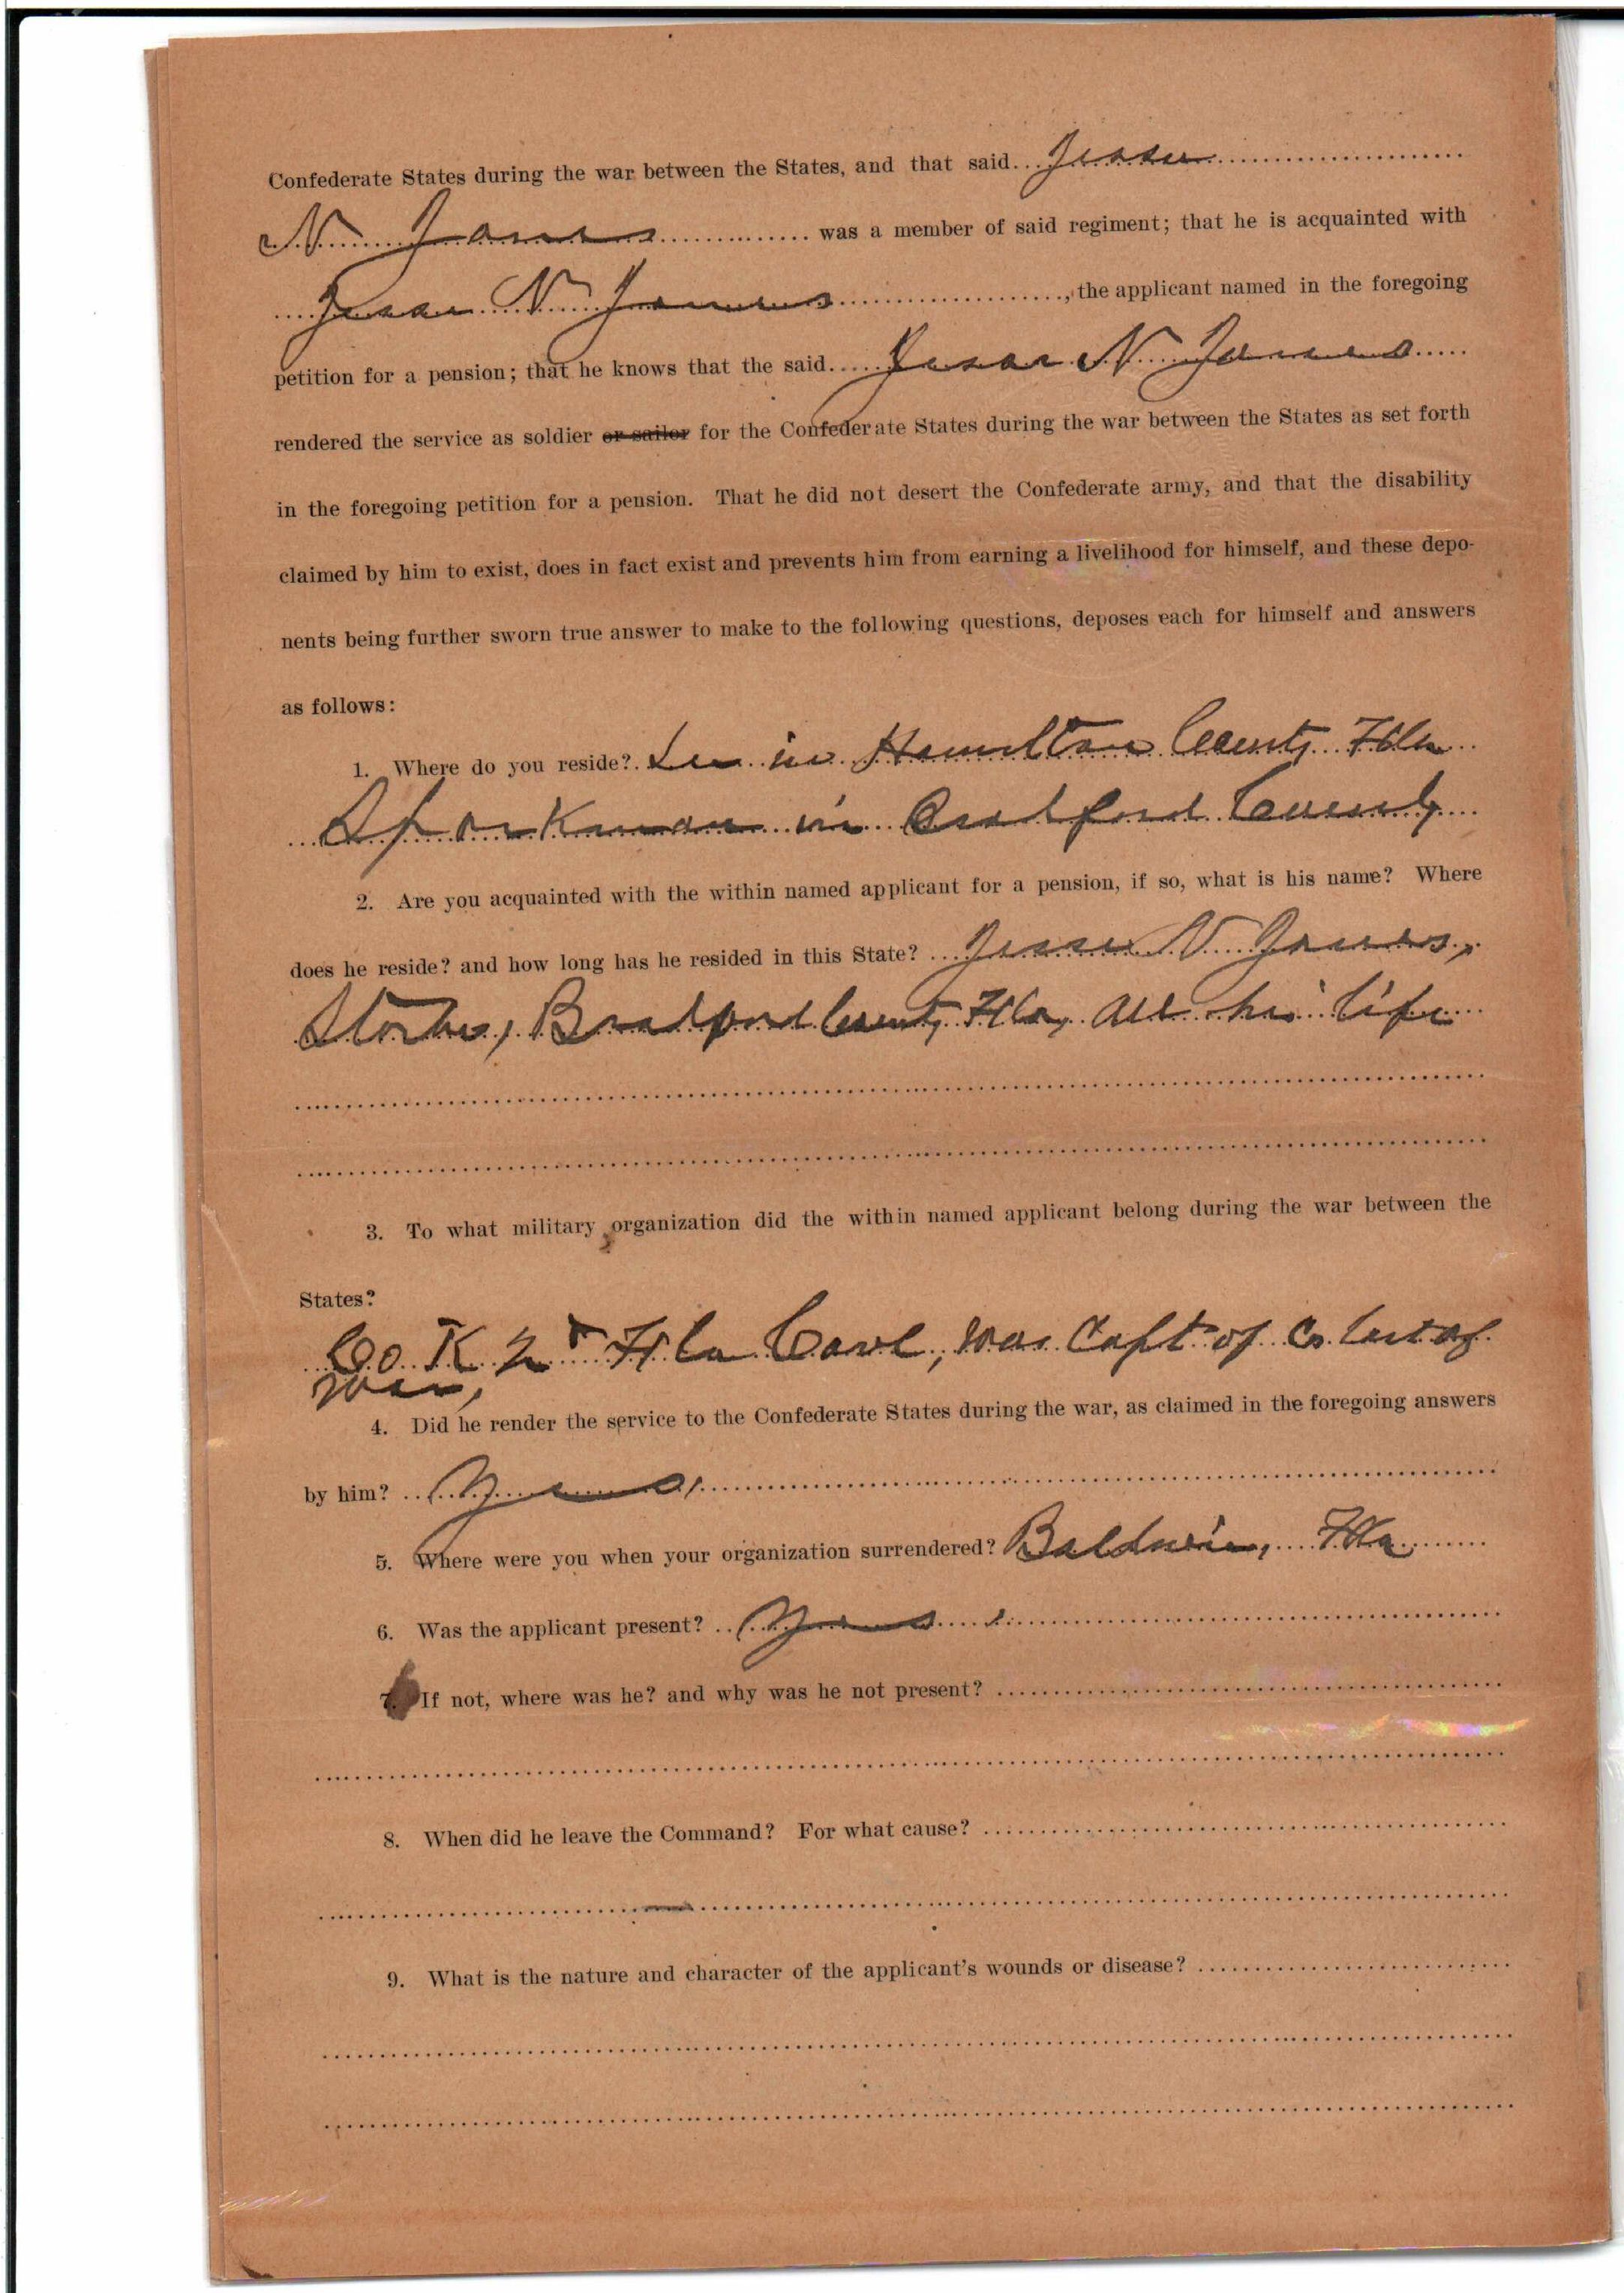 Confederate States during the war between the States, and that said Jesse
N. Jones was a member of said regiment; that he is acquainted with
Jesse N Jones, the applicant named in the foregoing
petition for a pension; that he knows that the said Jesse N Jones
rendered the service as soldier or sailor for the Confederate States during the war between the States as set forth
in the foregoing petition for a pension. That he did not desert the Confederate army, and that the disability
claimed by him to exist, does in fact exist and prevents him from earning a livelihood for himself, and these depo-
nents being further sworn true answer to make to the following questions, deposes each for himself and answers
as follows:
1. Where do you reside? Lee in Hamilton County Fla
Sparkman in Bradford County
2. Are you acquainted with the within named applicant for a pension, if so, what is his name? Where
does he reside? and how long has he resided in this State? Jesse N Jones,
Starke, Bradford County Fla, all his life
3. To what military organization did the within named applicant belong during the war between the
States?
Co K 2d Fla Cavl, was Capt of Co last of
war,
4. Did he render the service to the Confederate States during the war, as claimed in the foregoing answers
by him? Yes,
5. Where were you when your organization surrendered? Baldwin, Fla
6. Was the applicant present? Yes
7. If not, where was he? and why was he not present?
8. When did he leave the Command? For what cause?
9. What is the nature and character of the applicant's wounds or disease?